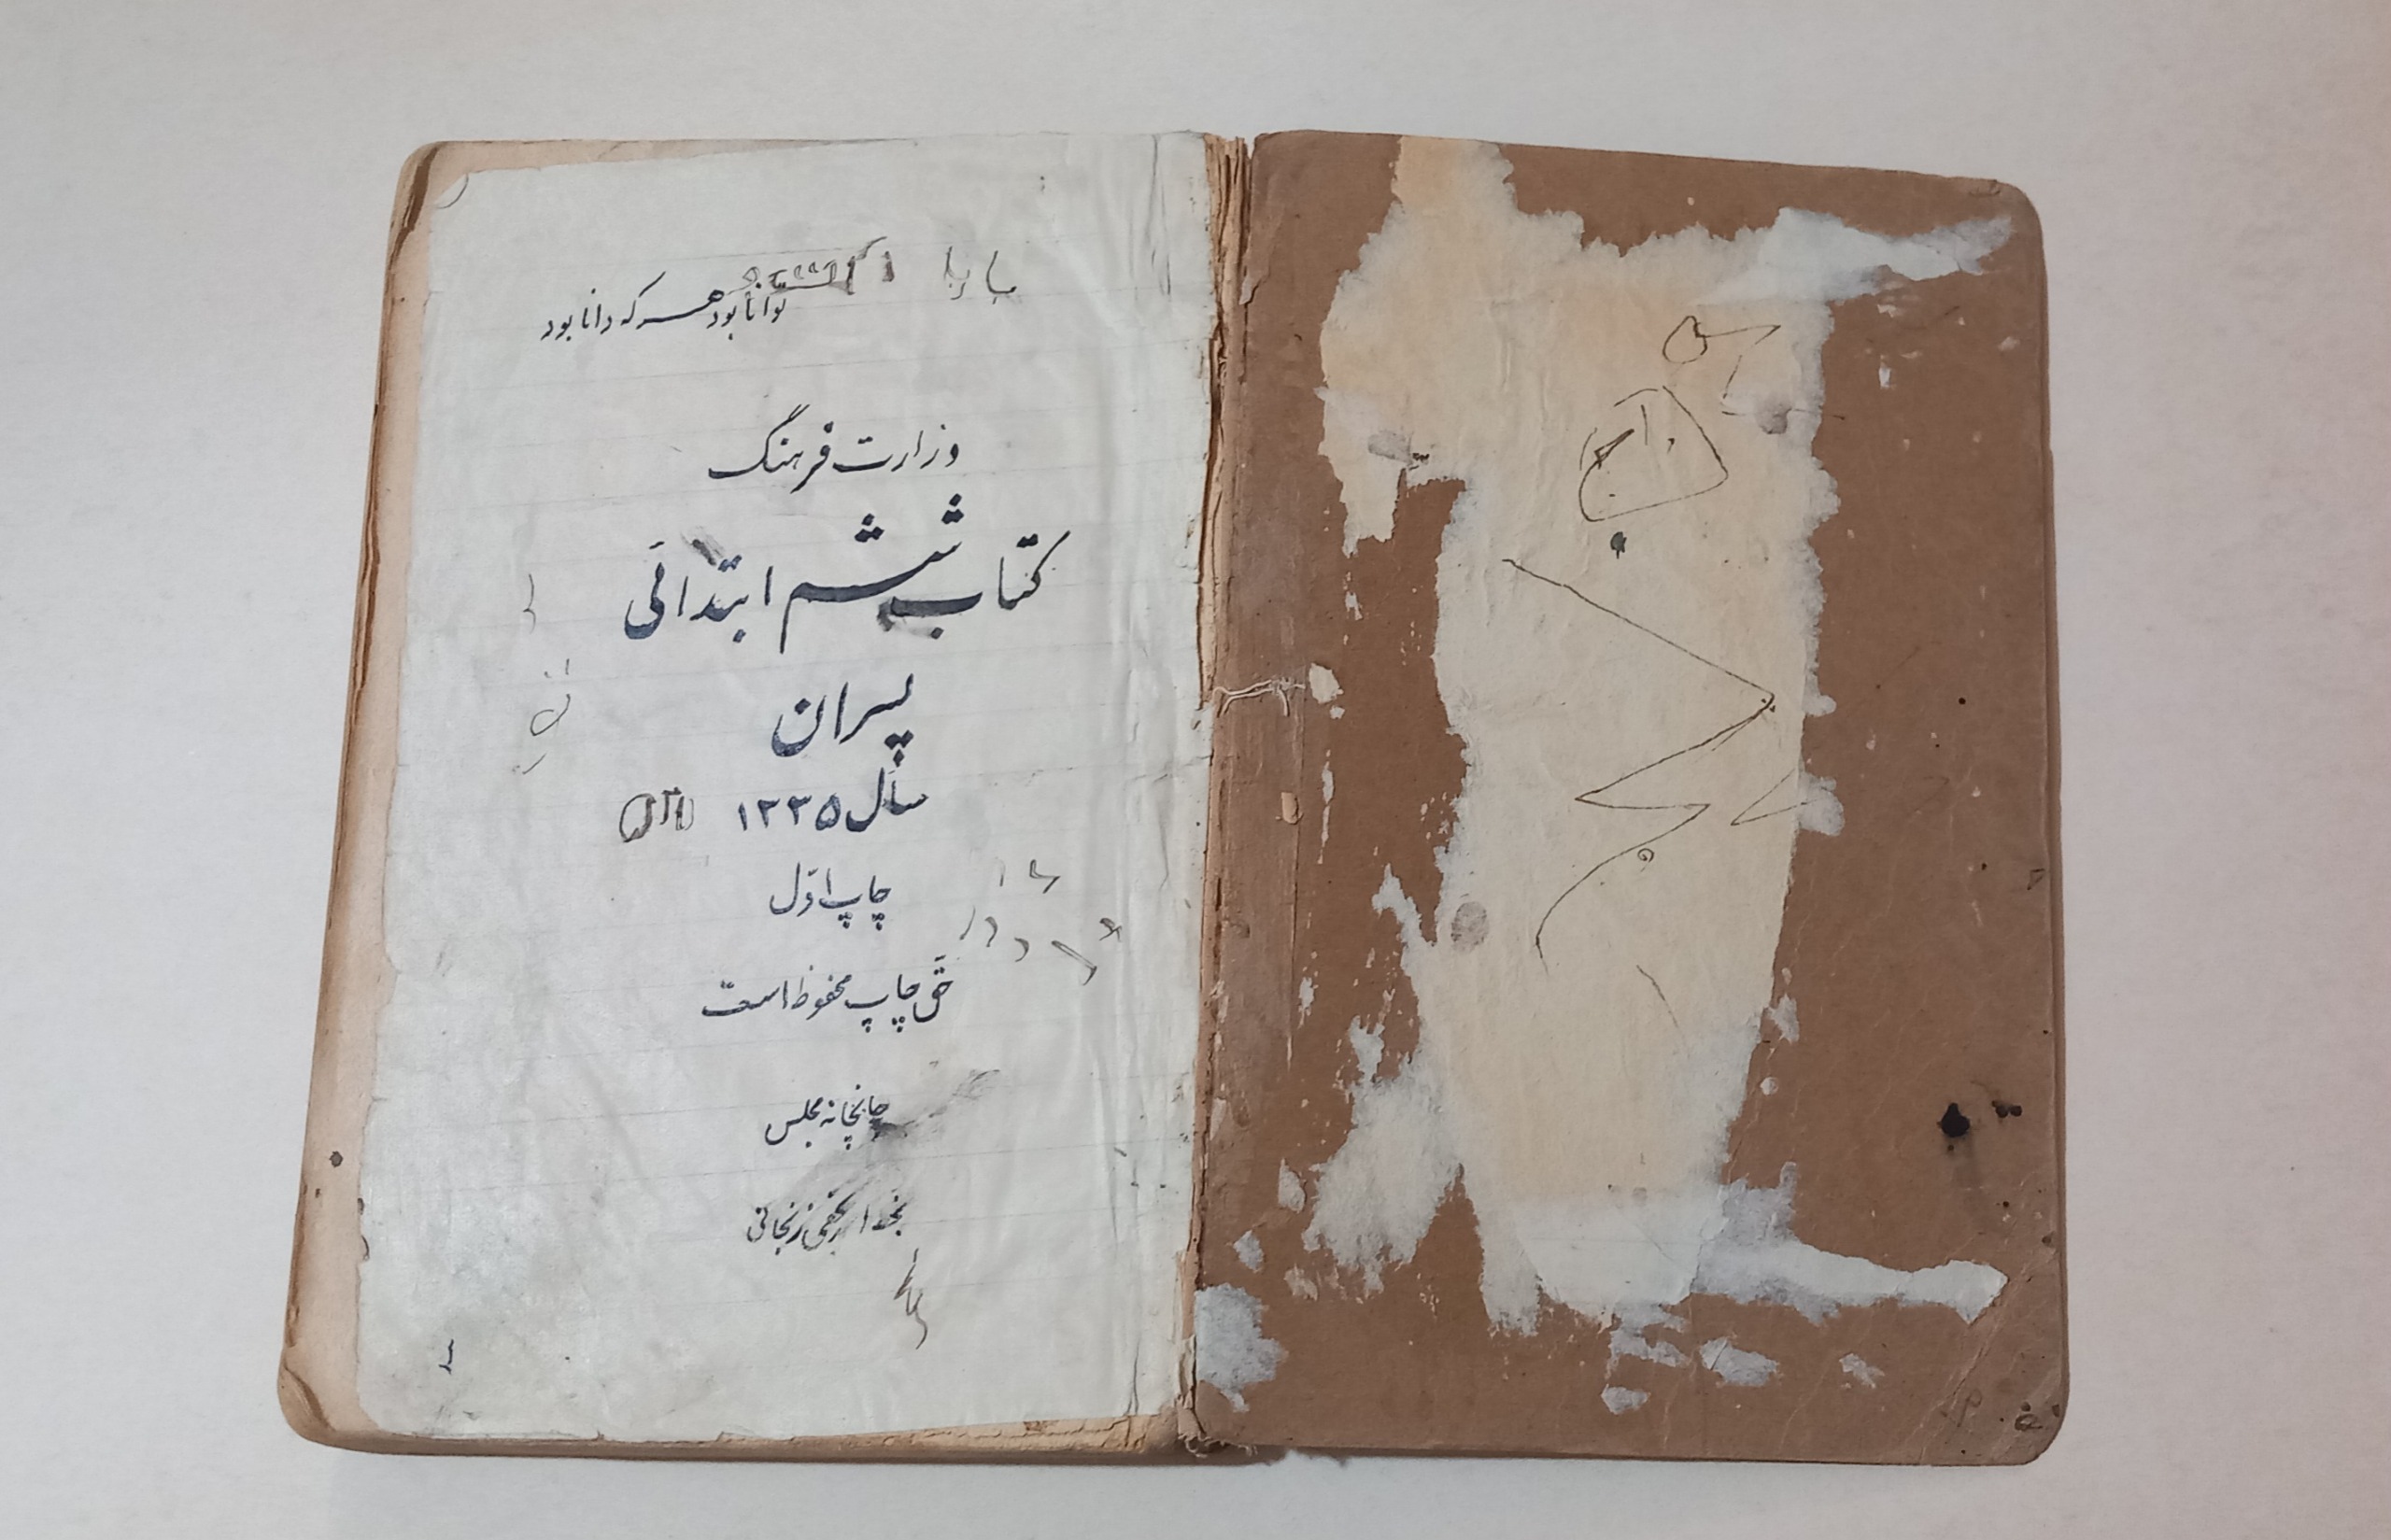 بابا
توانا بود هرکه دانا بود
وزارت فرهنگ
کتاب ششم ابتدائی
پسران
سال ۱۲۳۵
چاپ اوّل
حق چاپ محفوظ است
چاپخانه مجلس
بخط اثر نجفی زنجانی